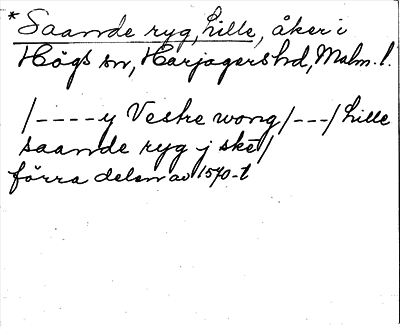 *Saande ryg, Lille, åker i
Högs sn, Harjagers hd, Malm. l.
/----y Vestre wong/---/ Lille
saande ryg j ske/
förra delen av 1570-t